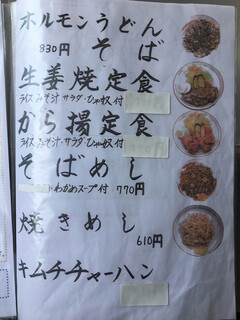 ホルモンうどん
830円 そば
生姜焼定食
ライス みそ汁・サラダ・ひゃヤス 付
から揚定食
ライス みそ汁・サラダ・ひゃヤス 付
そばめし
わかめスープ付 770円
焼きめし
610円
キムチチャーハン